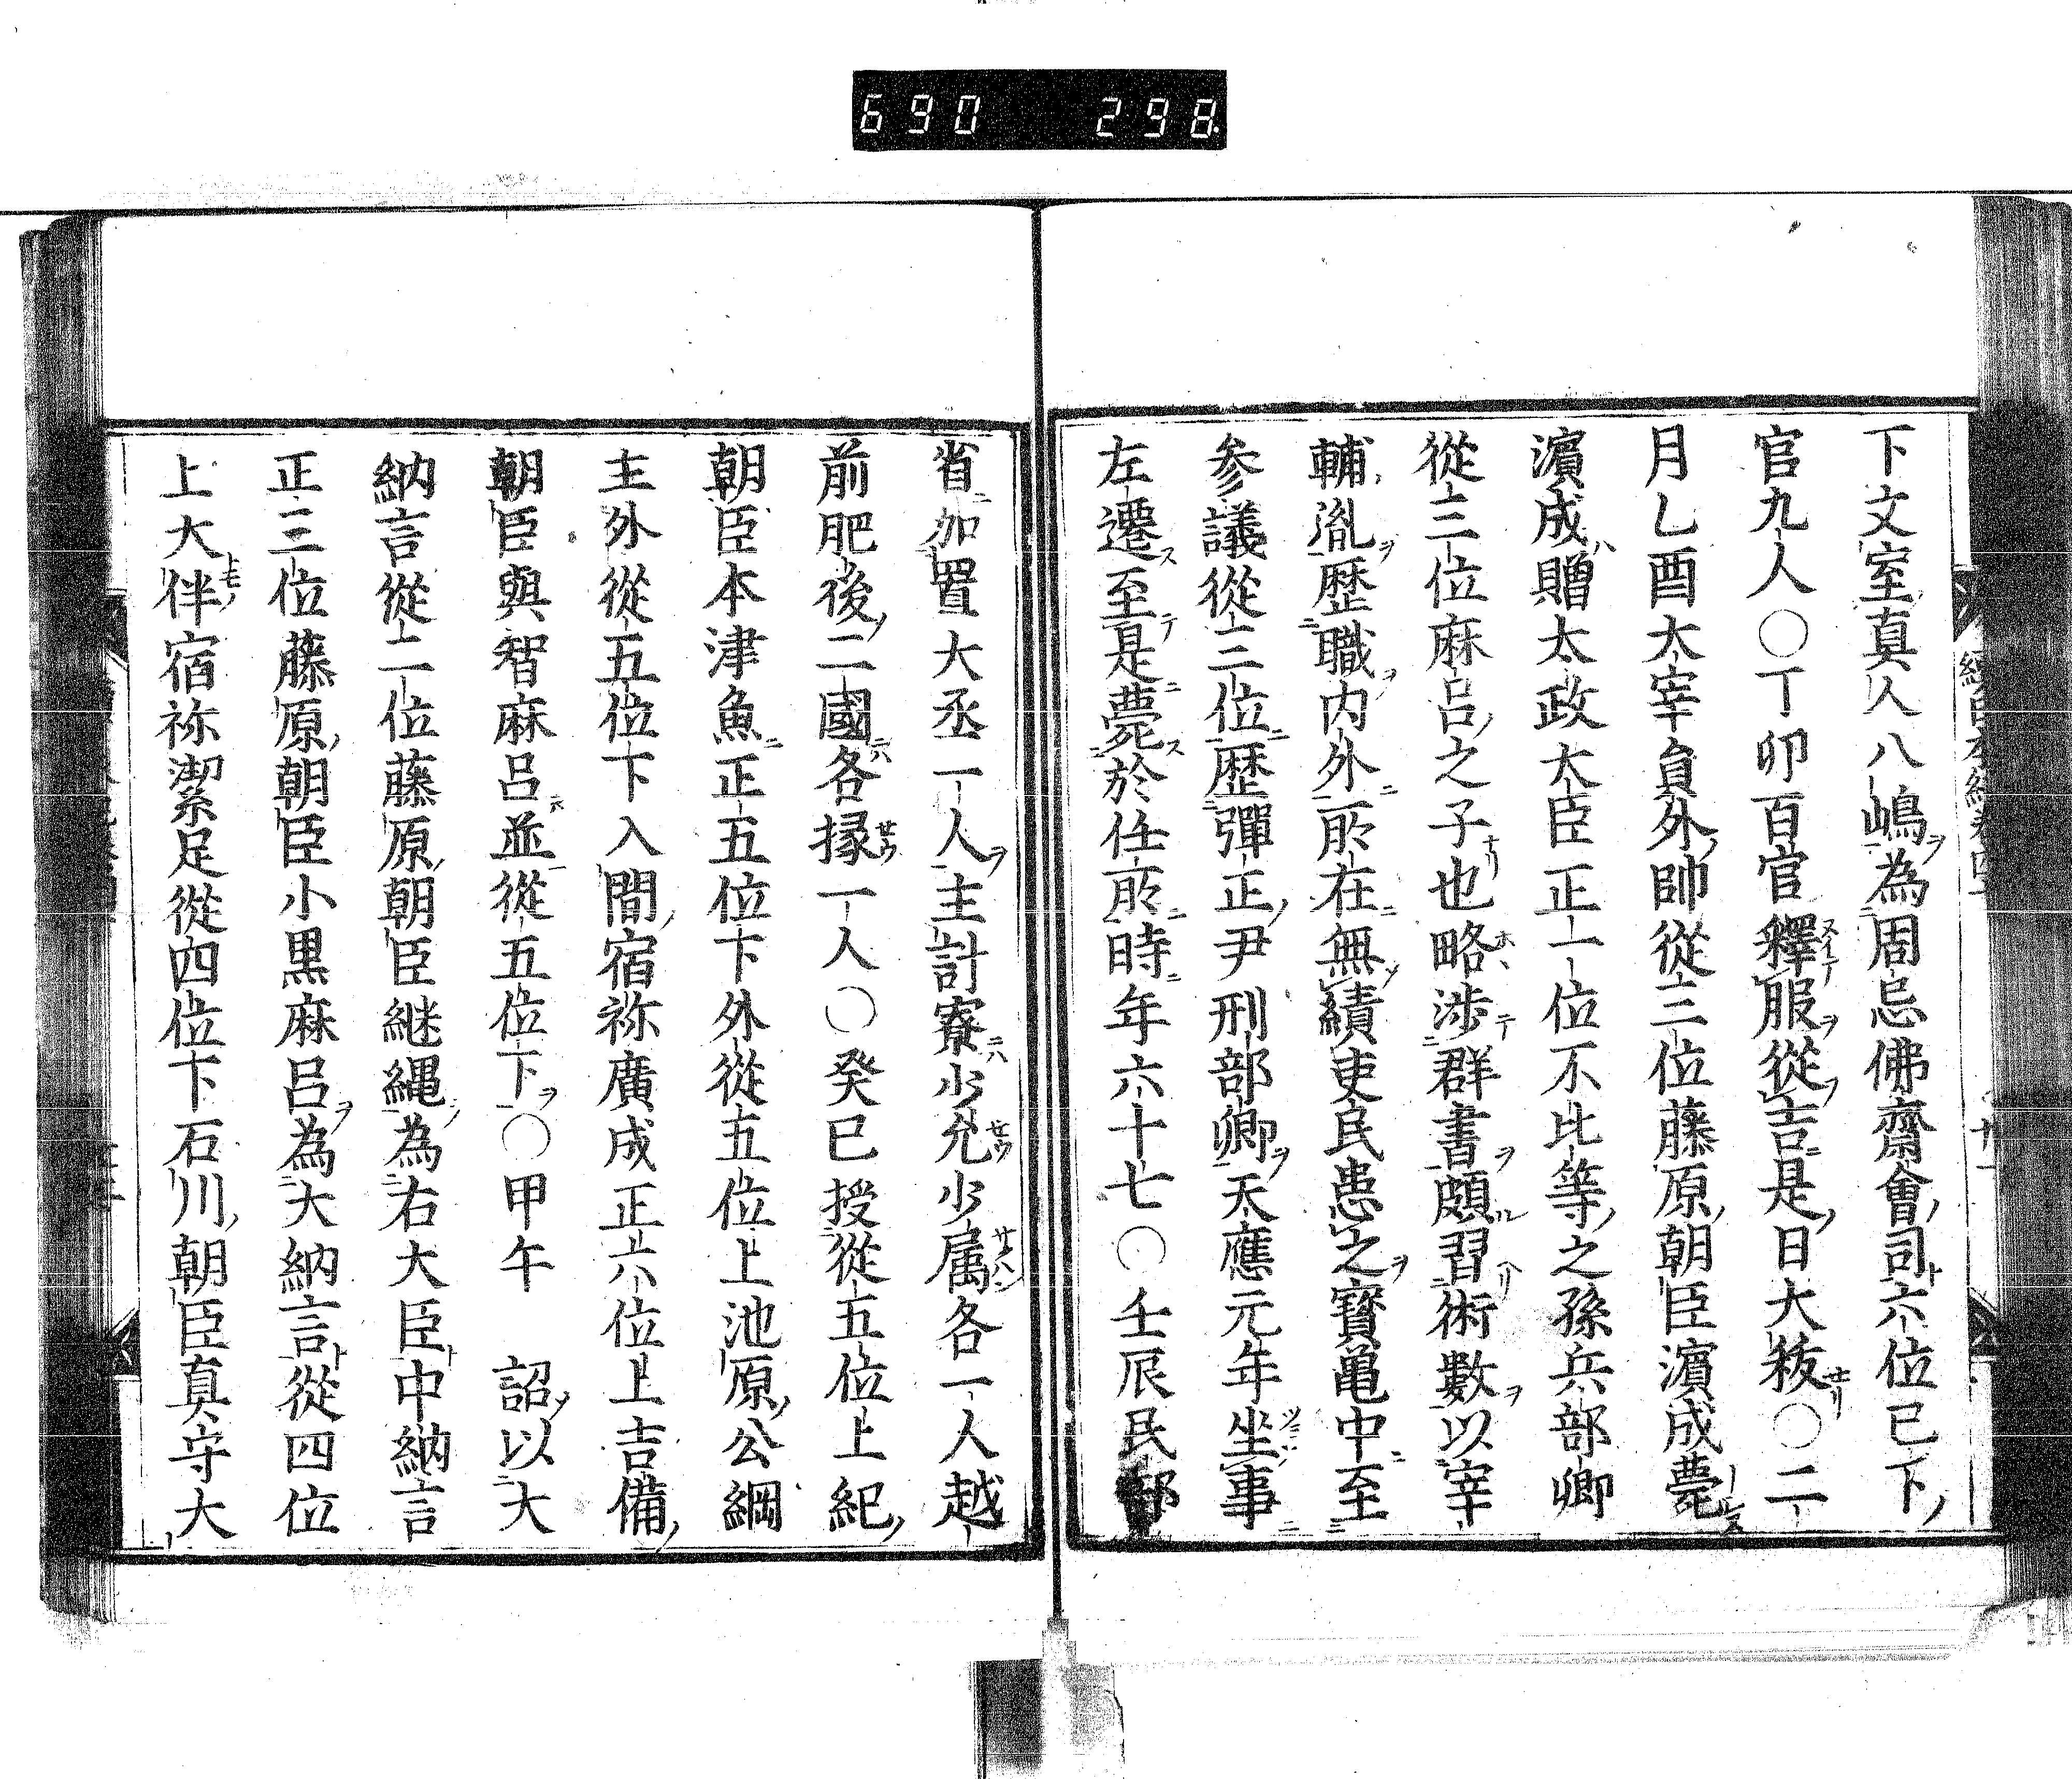 690 298
下文室真人八嶋為周忌佛齋會司六位已下
官九人〇丁卯百官釋服從吉是日大秡〇二
月乙酉太宰員外帥從三位藤原朝臣濵成薨
濵成贈太政大臣正一位不比等之孫兵部卿
從三位麻呂之子也略渉群書頗習術數以宰
輔胤歴職内外所在無績吏民患之寳亀中至
参議從三位歴彈正尹刑部卿天應元年坐事
左遷至是薨於任所時年六十七〇壬辰民部
省加置大丞一人主計寮少允少属各一人越
前肥後二國各掾一人〇癸巳授從五位上紀
朝臣本津魚正五位下外從五位上池原公綱
主外從五位下入間宿祢廣成正六位上吉備
朝臣與智麻呂並從五位下〇甲午 詔以大
納言從二位藤原朝臣継縄為右大臣中納言
正三位藤原朝臣小黒麻呂為大納言從四位
上大伴宿祢潔足從四位下石川朝臣真守大